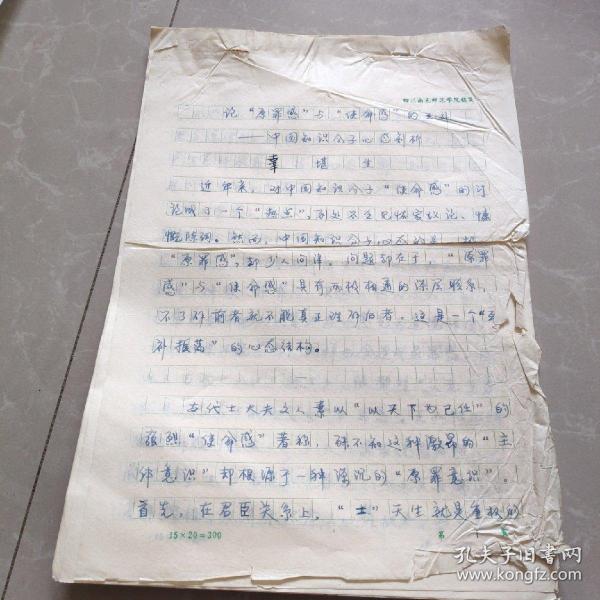 四川南充师范学院稿笺
论“原罪感”与“使命感”的
——中国知识分子心态剖析
堪生
近年来,对中国知识分子“使命感”的讨
论成了一个“热点”,到处不乏见惊家纹论、慷
慨陈词。然而,中国知识分子心态的另一
“原罪感”,却少人问津。问题却在于,“原罪
感”与“使命感”具有两极相通的深层联系,
不了解前者就不能真正理解后者。这是一个“互
补振荡”的心态结构。
一
古代士大夫文人素以“以天下为己任”的
强烈“使命感”著称,殊不知这种激昂的“主
体意识”却根源于一种深沉的“原罪意识”。
首先,在君臣关系上,“士”天生就是重极的
15×20=300
第 页
孔夫子旧书网
www.kongfz.com